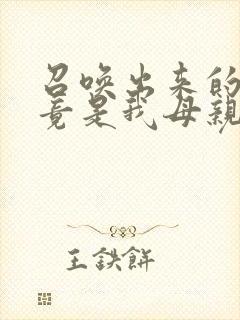 召唤出来的
竟是我母親
王鉄餅